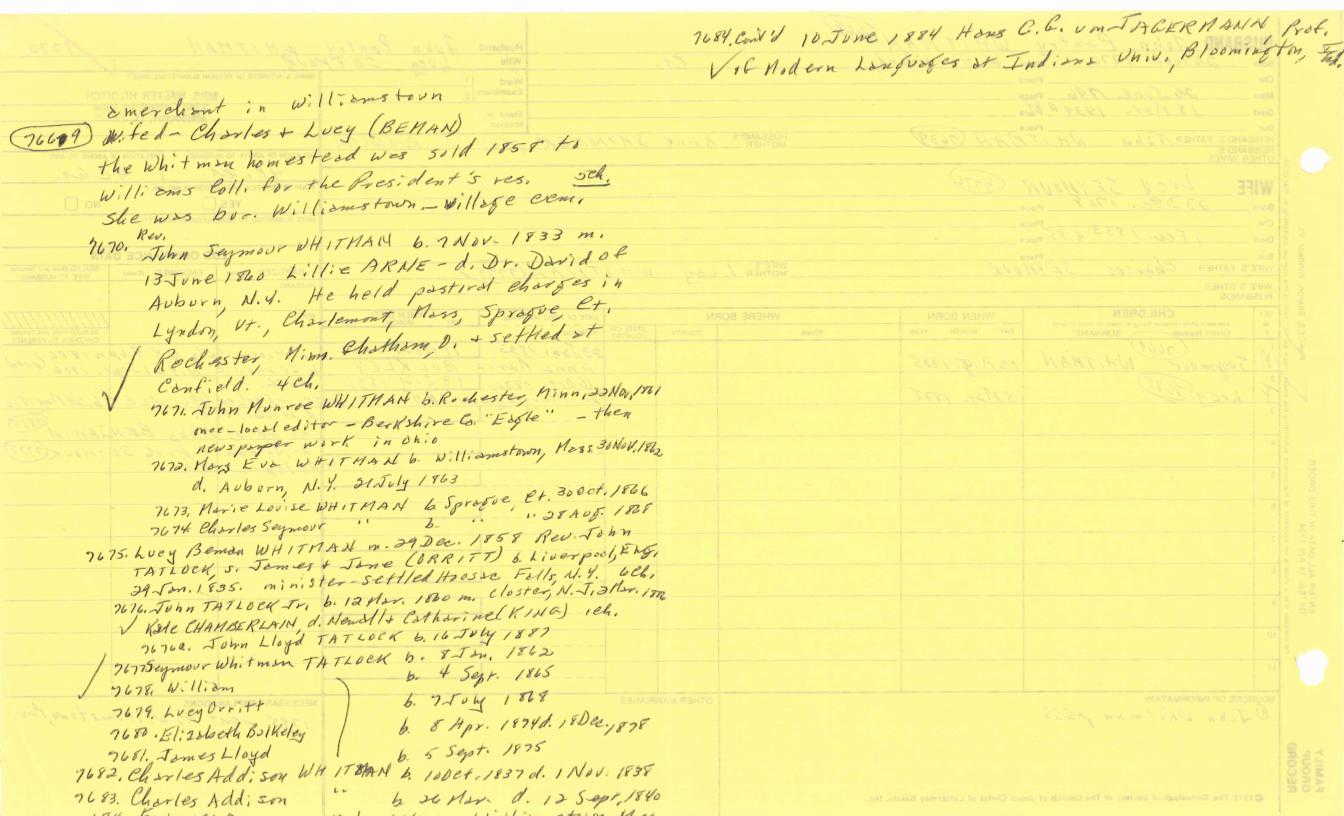 7684. Cont'd 10 June 1884 Hans C.G. von JAGERMANN Prof.
✓ of Modern Languages at Indiana Univ., Bloomington, Ind.
a merchant in Williamstown
7669 wife d- Charles + Lucy (BEMAN)
the Whitman homestead was sold 1858 to
Williams Coll. for the President's res. 5ch.
She was bur. Williamstown - Village cem.
7670. Rev. John Seymour WHITMAN b. 7 Nov. 1833 m.
13 June 1860 Lillie ARNE - d. Dr. David of
Auburn, N.Y. He held pastoral charges in
Lyndon, Vt., Charlemont, Mass, Sprague, Ct.
Rochester, Minn. Chatham, O. + settled at
Canfield. 4ch.
7671. John Munroe WHITMAN b. Rochester, Minn, 22 Nov, 1861
once-local editor - Berkshire Co. "Eagle" - then
newspaper work in Ohio
7672. Mary Eva WHITMAN b. Williamstown, Mass 30 Nov, 1862
d. Auburn, N.Y. 21 July 1863
7673. Marie Louise WHITMAN b. Sprague, Ct. 30 Oct. 1866
7674. Charles Seymour " b. " " 28 Aug. 1868
7675. Lucy Beman WHITMAN m. 29 Dec. 1858 Rev. John
TATLOCK, s. James + Jane (ORRITT) b. Liverpool, Eng.
29 Jan. 1835. minister-settled Hoosac Falls, N.Y. 6ch.
7676. John TATLOCK Jr. b. 12 Mar. 1860 m. Closter, N.J. 2 Mar. 1886
✓ Kate CHAMBERLAIN, d. Newell + Catharine (KING) 1ch.
7676a. John Lloyd TATLOCK b. 16 July 1887
7677 Seymour Whitman TATLOCK b. 8 Jan. 1862
7678. William b. 4 Sept. 1865
7679. Lucy Orritt b. 7 July 1868
7680. Elizabeth Bulkeley b. 8 Apr. 1874 d. 18 Dec., 1878
7681. James Lloyd b. 5 Sept. 1875
7682. Charles Addison WHITMAN b. 10 Oct. 1837 d. 1 Nov. 1838
7683. Charles Addison " b. 26 Mar. d. 12 Sept, 1840